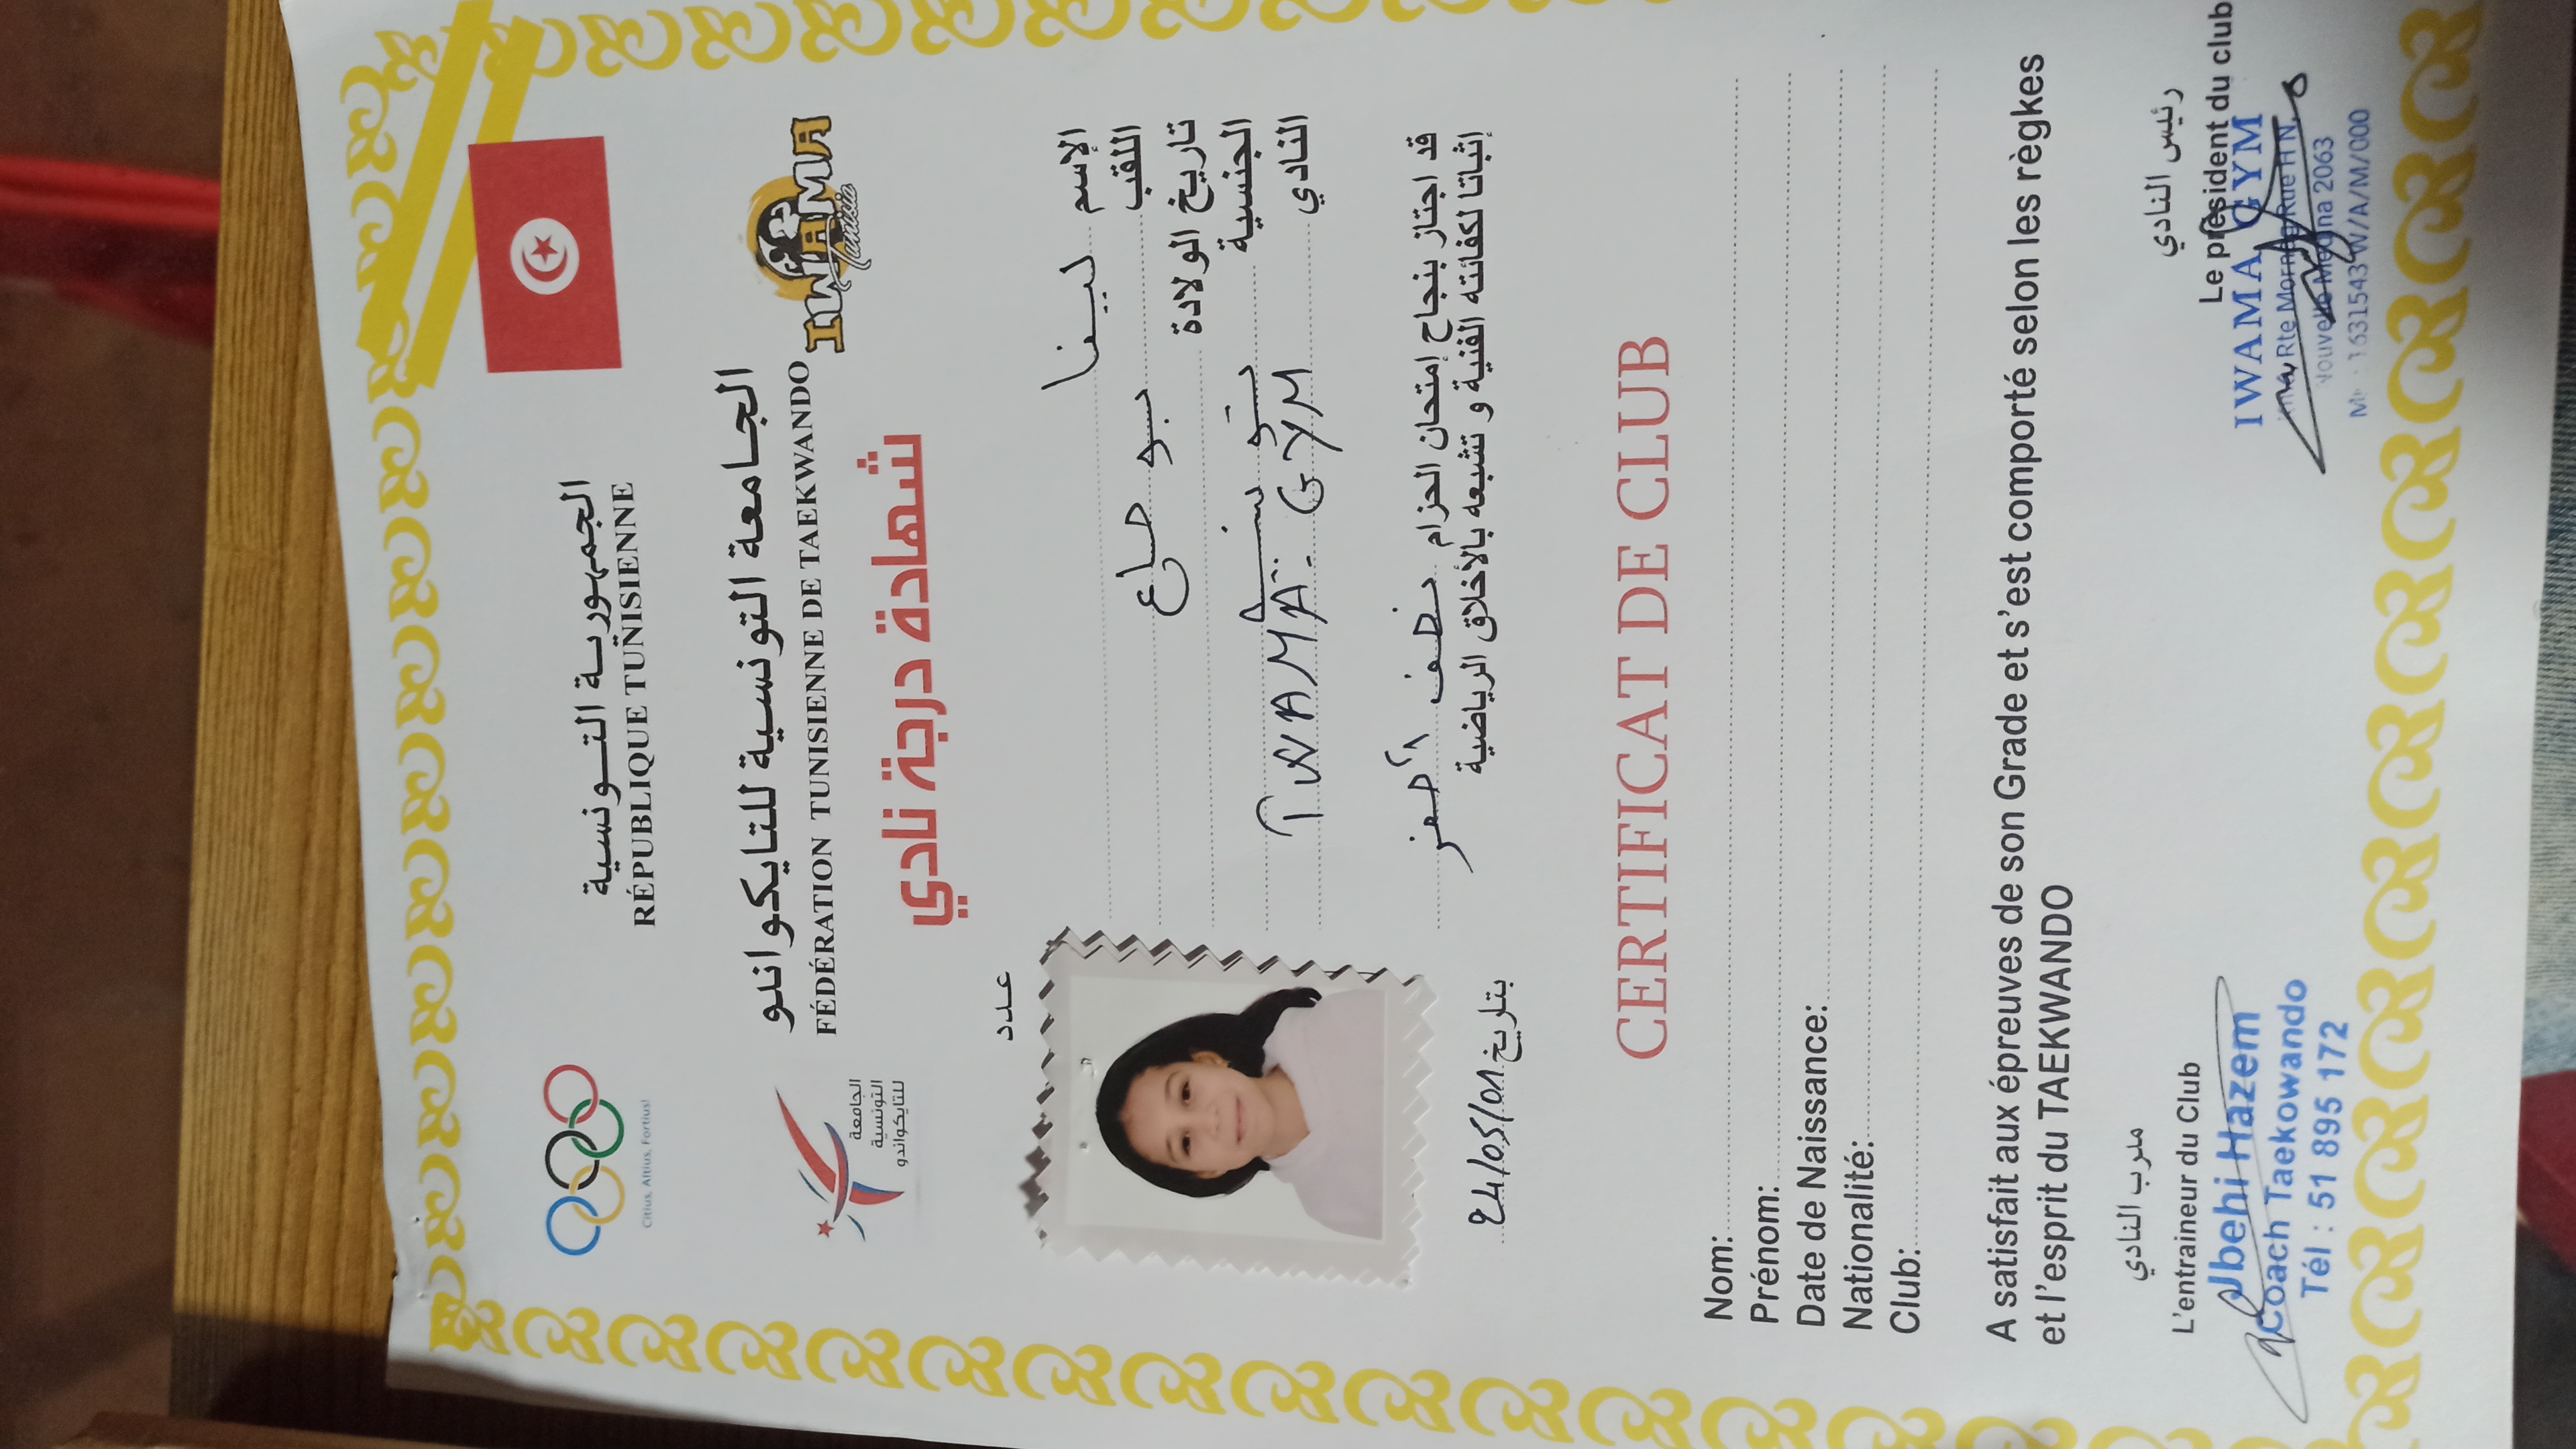 الجمهورية التونسية
RÉPUBLIQUE TUNISIENNE
Citius, Altius, Fortius!
الجامعة التونسية للتايكواندو
FÉDÉRATION TUNISIENNE DE TAEKWANDO
الجامعة
التونسية
للتايكواندو
IWAMA
Tunisia
شهادة درجة نادي
عدد
الإسم لينا
اللقب بو صاع
تاريخ الولادة
الجنسية تونسية
النادي IWAMA GYM
قد اجتاز بنجاح إمتحان الحزام نصف أصفر
إثباتا لكفائته الفنية و تشبعه بالأخلاق الرياضية
بتاريخ 24/05/01
CERTIFICAT DE CLUB
Nom:
Prénom:
Date de Naissance:
Nationalité:
Club:
A satisfait aux épreuves de son Grade et s'est comporté selon les règkes
et l'esprit du TAEKWANDO
مدرب النادي
L'entraineur du Club
Jbehi Hazem
Coach Taekowando
Tél : 51 895 172
رئيس النادي
Le président du club
IWAMA GYM
Rte Mornag Rue H N.
Nouvelle Medina 2063
1631543 W/A/M/000